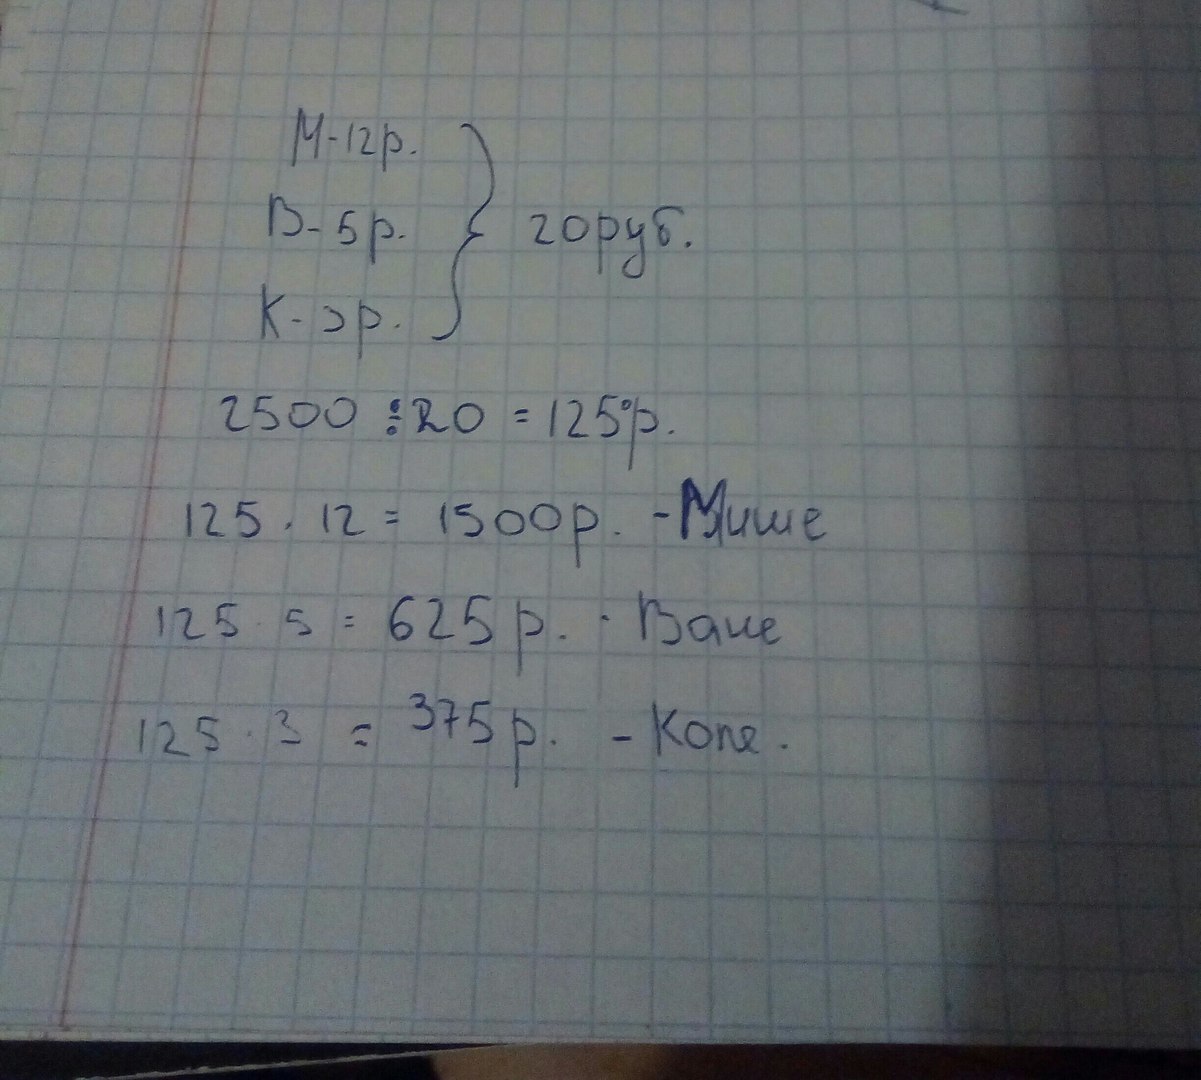 М-12р.
В-5р.
К-3р.
20руб.
2500 : 20 = 125р.
125 · 12 = 1500р. - Мише
125 · 5 = 625р. - Ване
125 · 3 = 375р. - Коле.